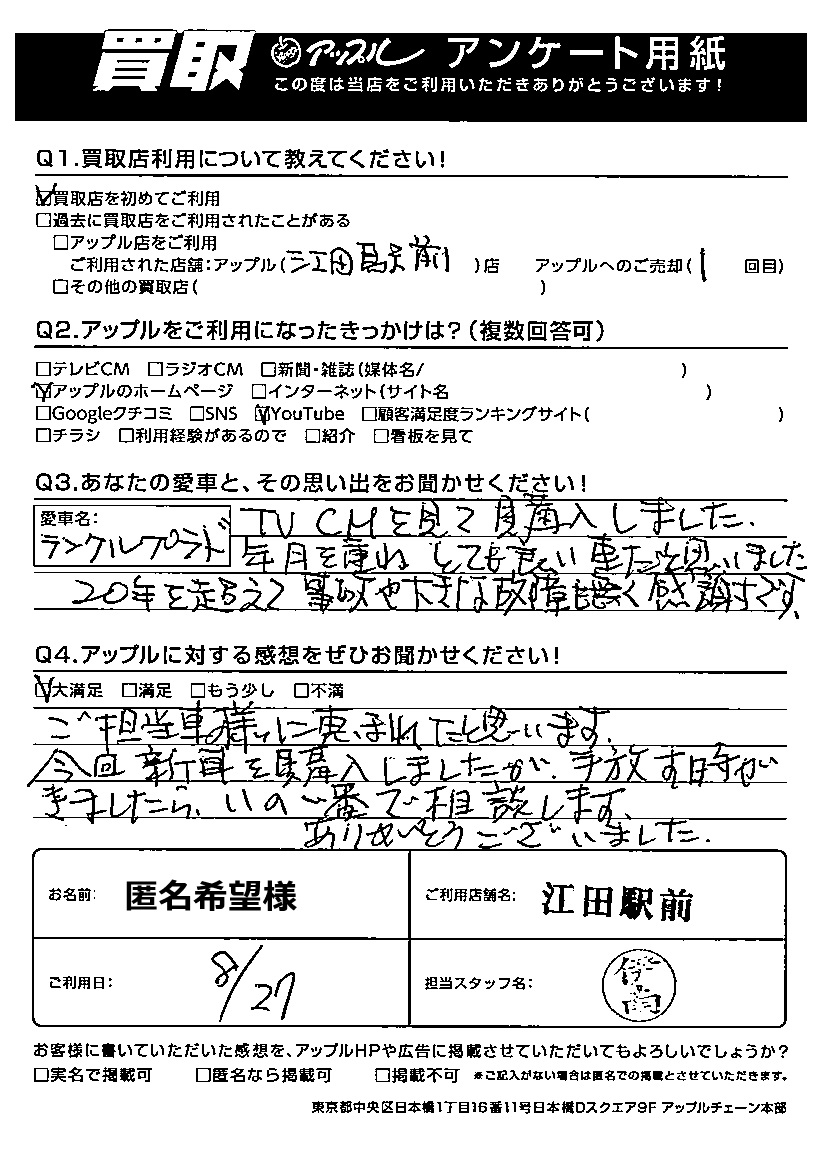 買取 アップル アンケート用紙
この度は当店をご利用いただきありがとうございます!
Q1.買取店利用について教えてください!
☑買取店を初めてご利用
□過去に買取店をご利用されたことがある
□アップル店をご利用
ご利用された店舗:アップル(江田駅前)店 アップルへのご売却(1回目)
□その他の買取店( )
Q2.アップルをご利用になったきっかけは?(複数回答可)
□テレビCM □ラジオCM □新聞・雑誌(媒体名/ )
☑アップルのホームページ □インターネット(サイト名 )
□Googleクチコミ □SNS ☑YouTube □顧客満足度ランキングサイト( )
□チラシ □利用経験があるので □紹介 □看板を見て
Q3.あなたの愛車と、その思い出をお聞かせください!
愛車名:
ランクルプラド
TV CMを見て購入しました.
年月を重ね とても良い車だと思いました
20年を超えて 事故や大きな故障も無く感謝です、
Q4.アップルに対する感想をぜひお聞かせください!
☑大満足 □満足 □もう少し □不満
ご担当車様に恵まれたと思います.
今回 新車を購入しましたが、手放す時が
きましたら、いの一番で相談します、
ありがとうございました.
お名前: 匿名希望様
ご利用店舗名: 江田駅前
ご利用日: 8/27
担当スタッフ名: 伊南
お客様に書いていただいた感想を、アップルHPや広告に掲載させていただいてもよろしいでしょうか?
□実名で掲載可 □匿名なら掲載可 □掲載不可 ※ご記入がない場合は匿名での掲載とさせていただきます。
東京都中央区日本橋1丁目16番11号日本橋Dスクエア9F アップルチェーン本部